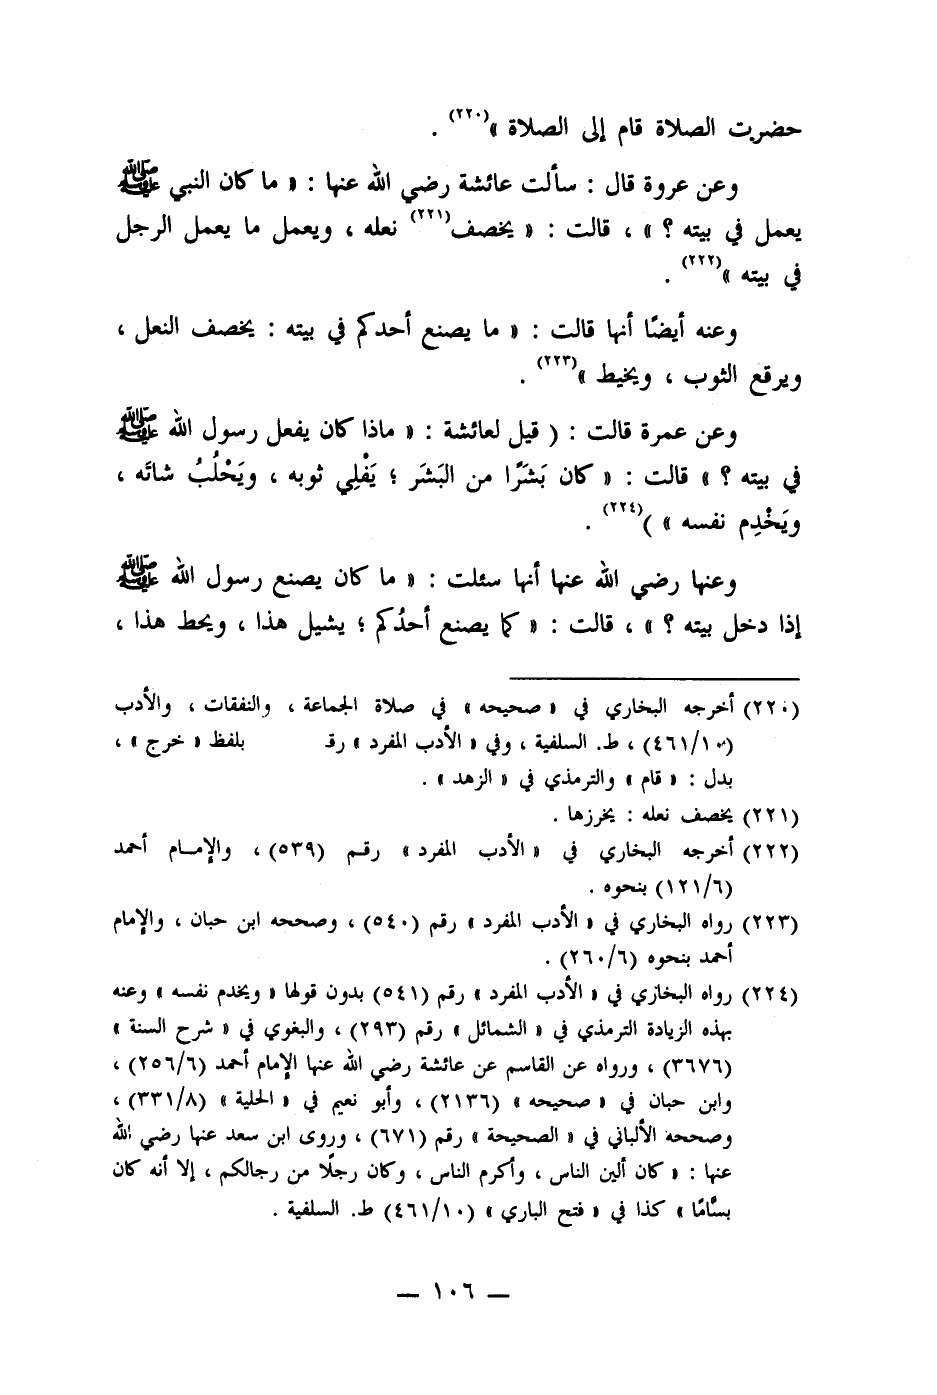 حضرت الصلاة قام إلى الصلاة »(٢٢٠) .
وعن عروة قال : سألت عائشة رضي الله عنها : « ما كان النبي ﷺ
يعمل في بيته ؟ » ، قالت : « يخصف(٢٢١) نعله ، ويعمل ما يعمل الرجل
في بيته »(٢٢٢) .
وعنه أيضًا أنها قالت : « ما يصنع أحدكم في بيته : يخصف النعل ،
ويرقع الثوب ، ويخيط »(٢٢٣) .
وعن عمرة قالت : ( قيل لعائشة : « ماذا كان يفعل رسول الله ﷺ
في بيته ؟ » قالت : « كان بَشَرًا من البَشَر ؛ يَفْلِي ثوبه ، ويَحْلُبُ شاتَه ،
ويَخْدِم نفسه » )(٢٢٤) .
وعنها رضي الله عنها أنها سئلت : « ما كان يصنع رسول الله ﷺ
إذا دخل بيته ؟ » ، قالت : « كما يصنع أحدُكم ؛ يشيل هذا ، ويحط هذا ،
(٢٢٠) أخرجه البخاري في « صحيحه » في صلاة الجماعة ، والنفقات ، والأدب
(٤٦١/١٠) ، ط. السلفية ، وفي « الأدب المفرد » بلفظ « خرج » ،
بدل : « قام » والترمذي في « الزهد » .
(٢٢١) يخصف نعله : يخرزها .
(٢٢٢) أخرجه البخاري في « الأدب المفرد » رقم (٥٣٩) ، والإمام أحمد
(١٢١/٦) بنحوه .
(٢٢٣) رواه البخاري في « الأدب المفرد » رقم (٥٤٠) ، وصححه ابن حبان ، والإمام
أحمد بنحوه (٢٦٠/٦) .
(٢٢٤) رواه البخاري في « الأدب المفرد » رقم (٥٤١) بدون قولها « ويخدم نفسه » وعنه
بهذه الزيادة الترمذي في « الشمائل » رقم (٢٩٣) ، والبغوي في « شرح السنة »
(٣٦٧٦) ، ورواه عن القاسم عن عائشة رضي الله عنها الإمام أحمد (٢٥٦/٦) ،
وابن حبان في « صحيحه » (٢١٣٦) ، وأبو نعيم في « الحلية » (٣٣١/٨) ،
وصححه الألباني في « الصحيحة » رقم (٦٧١) ، وروى ابن سعد عنها رضي الله
عنها : « كان ألين الناس ، وأكرم الناس ، وكان رجلًا من رجالكم ، إلا أنه كان
بسَّامًا » كذا في « فتح الباري » (٤٦١/١٠) ط. السلفية .
— ١٠٦ —